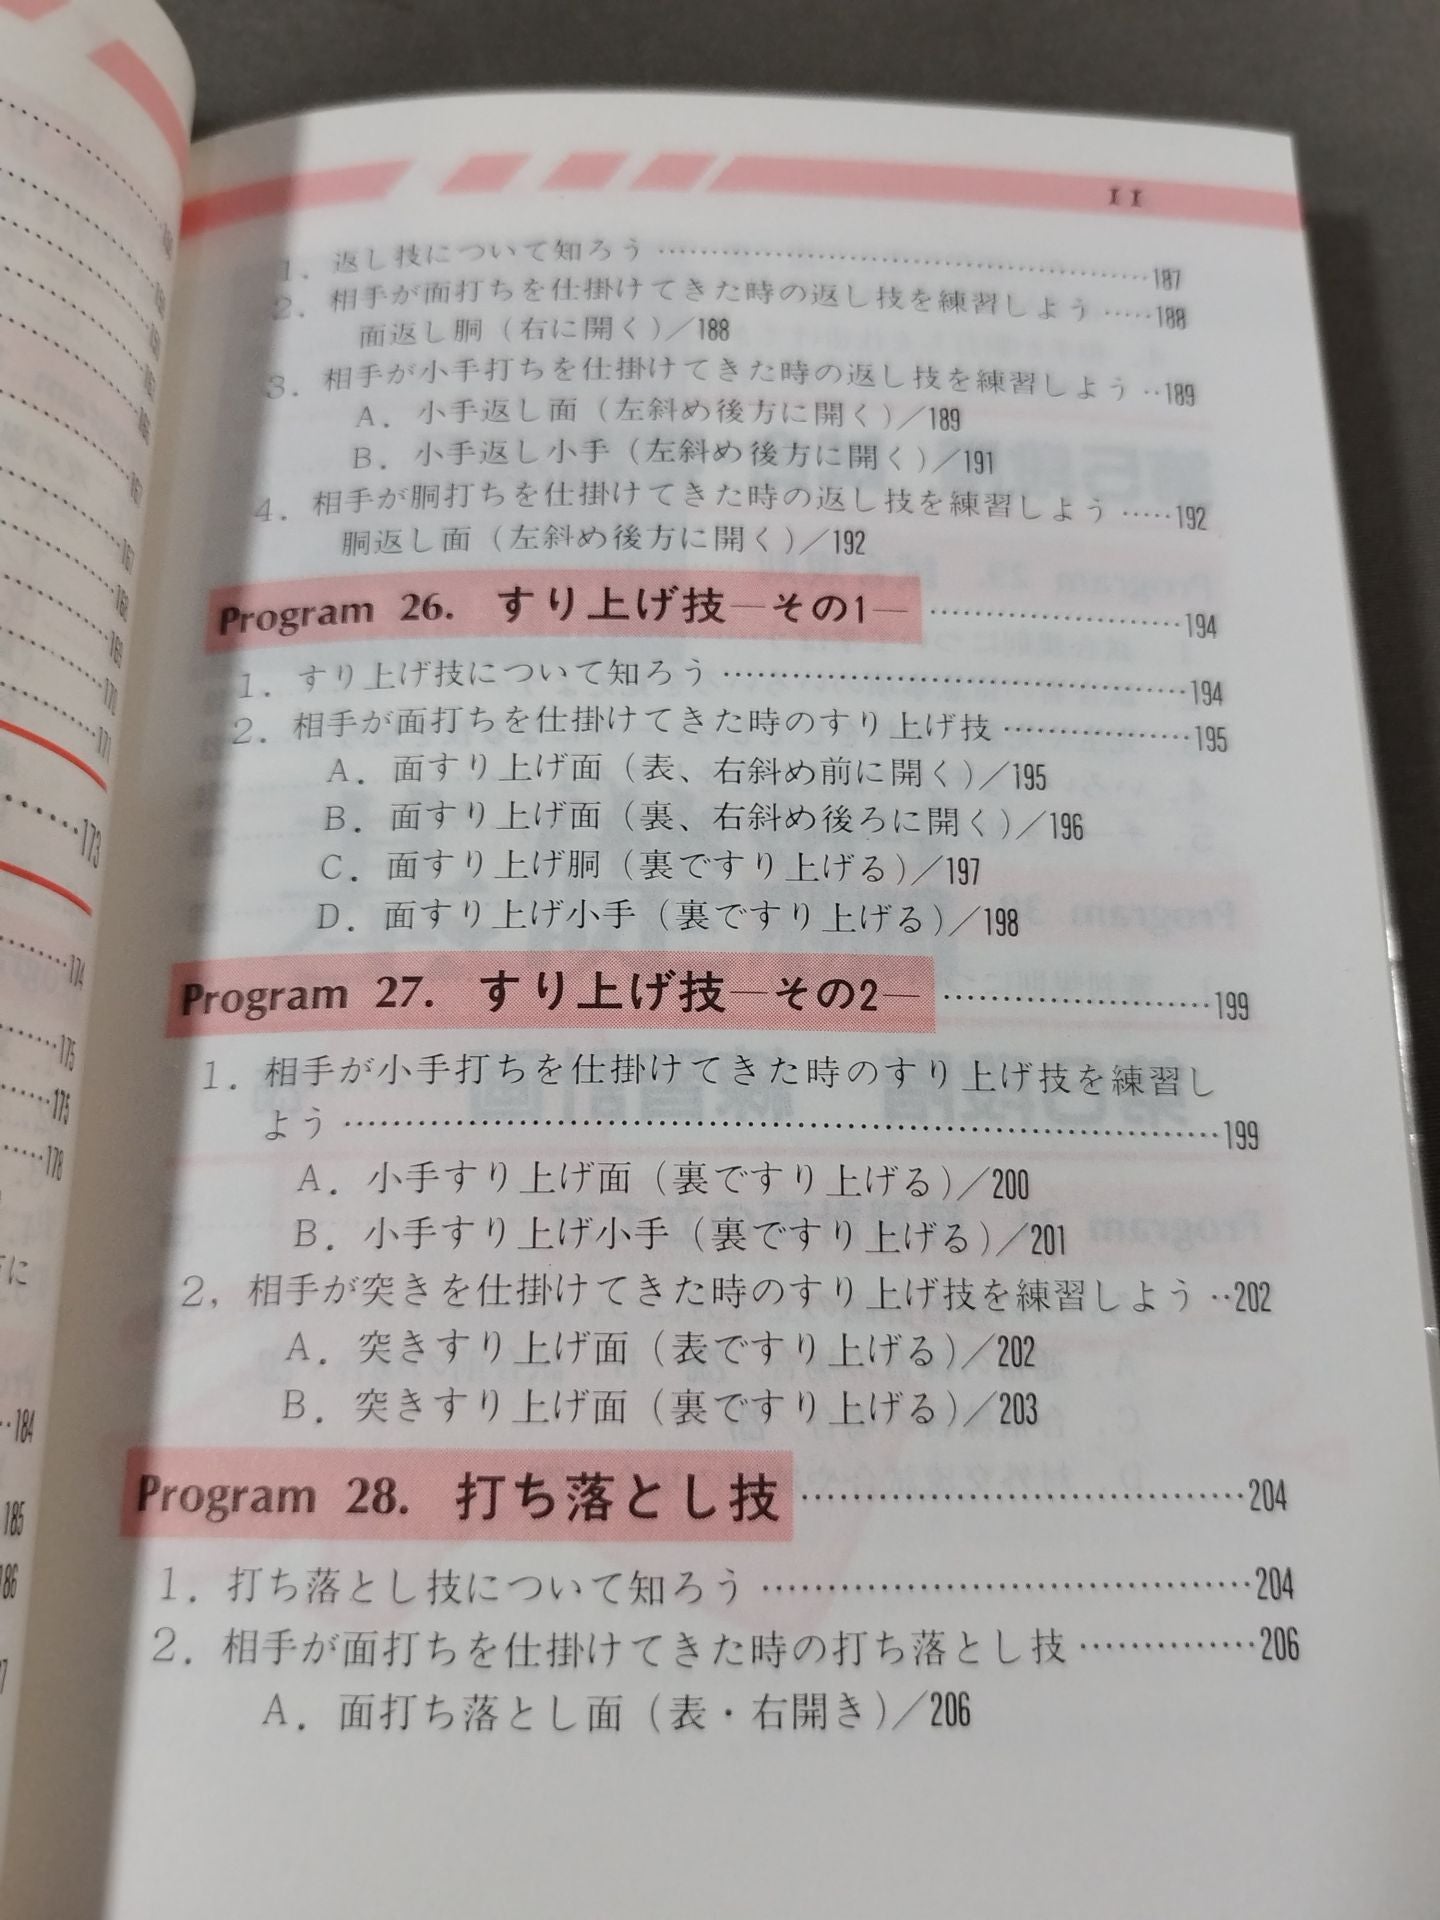 11
1. 返し技について知ろう……187
2. 相手が面打ちを仕掛けてきた時の返し技を練習しよう……188
面返し胴（右に開く）／188
3. 相手が小手打ちを仕掛けてきた時の返し技を練習しよう‥189
A. 小手返し面（左斜め後方に開く）／189
B. 小手返し小手（左斜め後方に開く）／191
4. 相手が胴打ちを仕掛けてきた時の返し技を練習しよう……192
胴返し面（左斜め後方に開く）／192
Program 26. すり上げ技―その1―……194
1. すり上げ技について知ろう……194
2. 相手が面打ちを仕掛けてきた時のすり上げ技……195
A. 面すり上げ面（表、右斜め前に開く）／195
B. 面すり上げ面（裏、右斜め後ろに開く）／196
C. 面すり上げ胴（裏ですり上げる）／197
D. 面すり上げ小手（裏ですり上げる）／198
Program 27. すり上げ技―その2―……199
1. 相手が小手打ちを仕掛けてきた時のすり上げ技を練習し
よう……199
A. 小手すり上げ面（裏ですり上げる）／200
B. 小手すり上げ小手（裏ですり上げる）／201
2, 相手が突きを仕掛けてきた時のすり上げ技を練習しよう‥202
A. 突きすり上げ面（表ですり上げる）／202
B. 突きすり上げ面（裏ですり上げる）／203
Program 28. 打ち落とし技……204
1. 打ち落とし技について知ろう……204
2. 相手が面打ちを仕掛けてきた時の打ち落とし技……206
A. 面打ち落とし面（表・右開き）／206
167
167
168
169
170
171
173
174
175
175
178
に
184
185
186